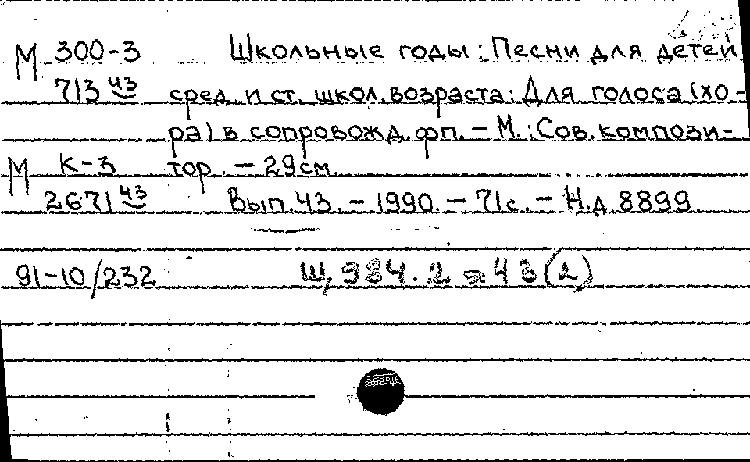 М 300-3 Школьные годы: Песни для детей
713 43 сред. и ст. школ. возраста: Для голоса (хо-
ра) в сопровожд. фп. – М.: Сов. компози-
М К-3 тор. – 29 см.
2671 43 Вып. 43. – 1990. – 71 с. – Н.д. 8899
91-10/232 Щ 984.2 я 43 (2)